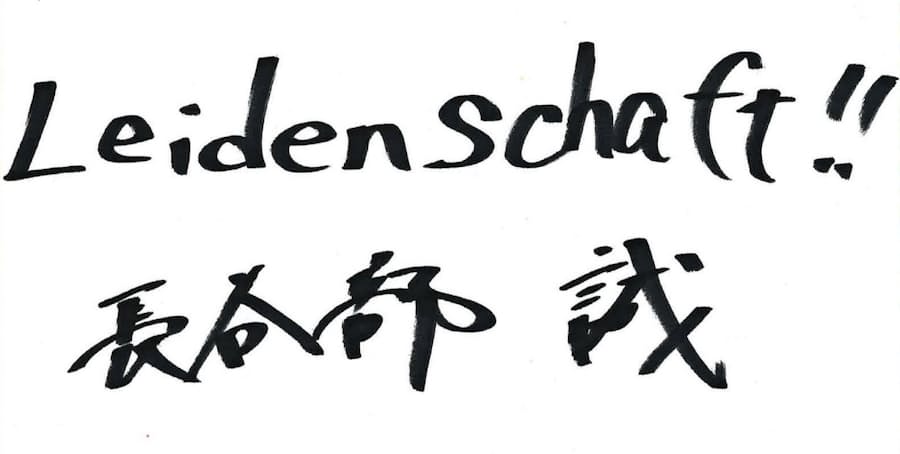 Leidenschaft!!
長谷部 誠